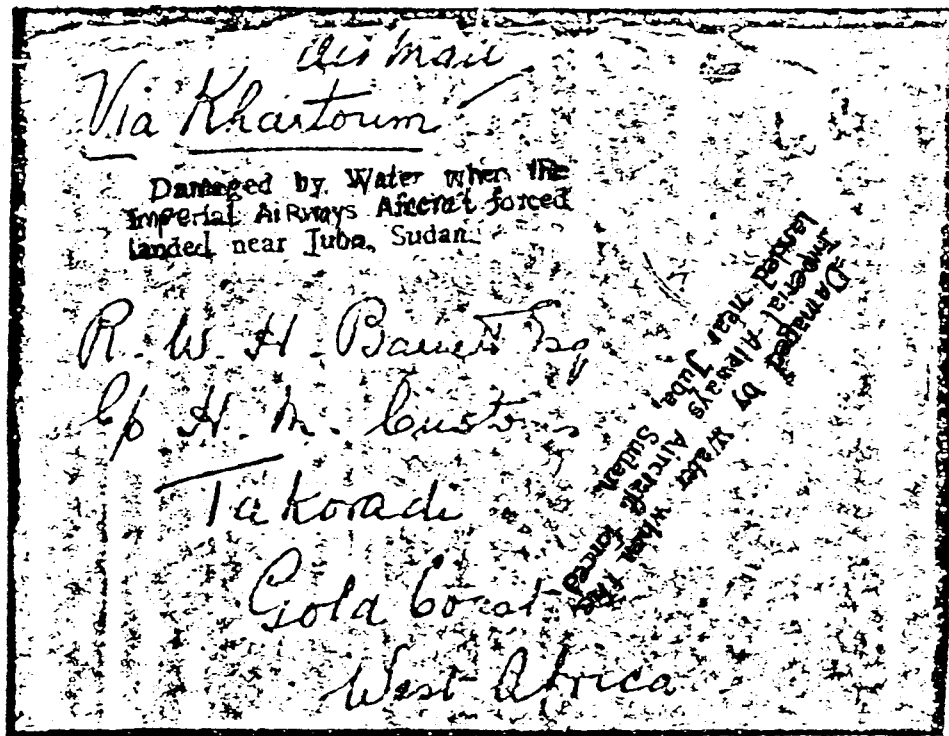 Air Mail
Via Khartoum
Damaged by Water when the
Imperial AiRways Aircraft forced
landed near Juba, Sudan.
R. W. H. Barrett Esq
C/o H. M. Customs
Takoradi
Gold Coast
West Africa
Damaged by Water when the
Imperial Airways Aircraft forced
landed near Juba, Sudan.